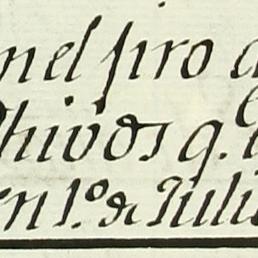 nel siro d
Chivos q. l
en 1.º de Julio